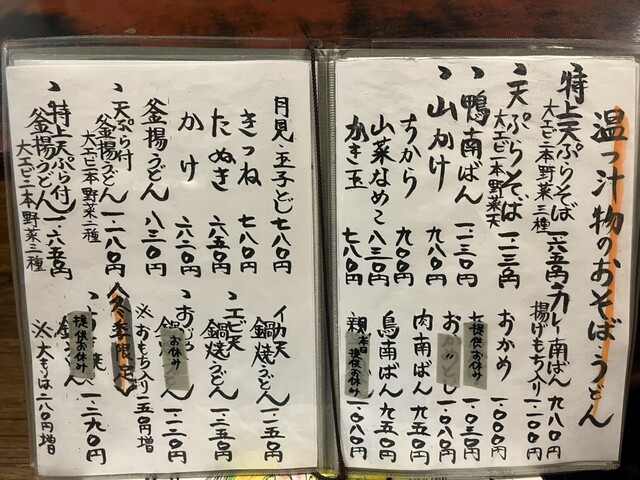 温つ汁物のおそばうどん
特上天ぷらそば 一、六五〇円
大エビ二本野菜三種
天ぷらそば 一、一三〇円
大エビ一本野菜天
鴨南ばん 一、一三〇円
山かけ 九八〇円
ちから 九〇〇円
山菜なめこ 八三〇円
かき玉 七八〇円
カレー南ばん 九八〇円
揚げもち入り 一、一〇〇円
おかめ 一、〇〇〇円
提供お休み 一、〇三〇円
お 一、〇八〇円
肉南ばん 九五〇円
鳥南ばん 九五〇円
親 一、〇八〇円
本日提供お休み
月見玉子とじ 七八〇円
きつね 七八〇円
たぬき 六五〇円
かけ 六二〇円
釜揚うどん 八三〇円
天ぷら付釜揚うどん 一、二八〇円
大エビ一本野菜二種
特上天ぷら付釜揚うどん 一、六五〇円
大エビ二本野菜三種
イカ天鍋焼うどん 一、一五〇円
エビ天鍋焼うどん 一、二五〇円
お
お休み うどん 一、一二〇円
※おもち入り一五〇円増
〈冬季限定〉
提供お休み 一、二九〇円
※大もりは二八〇円増